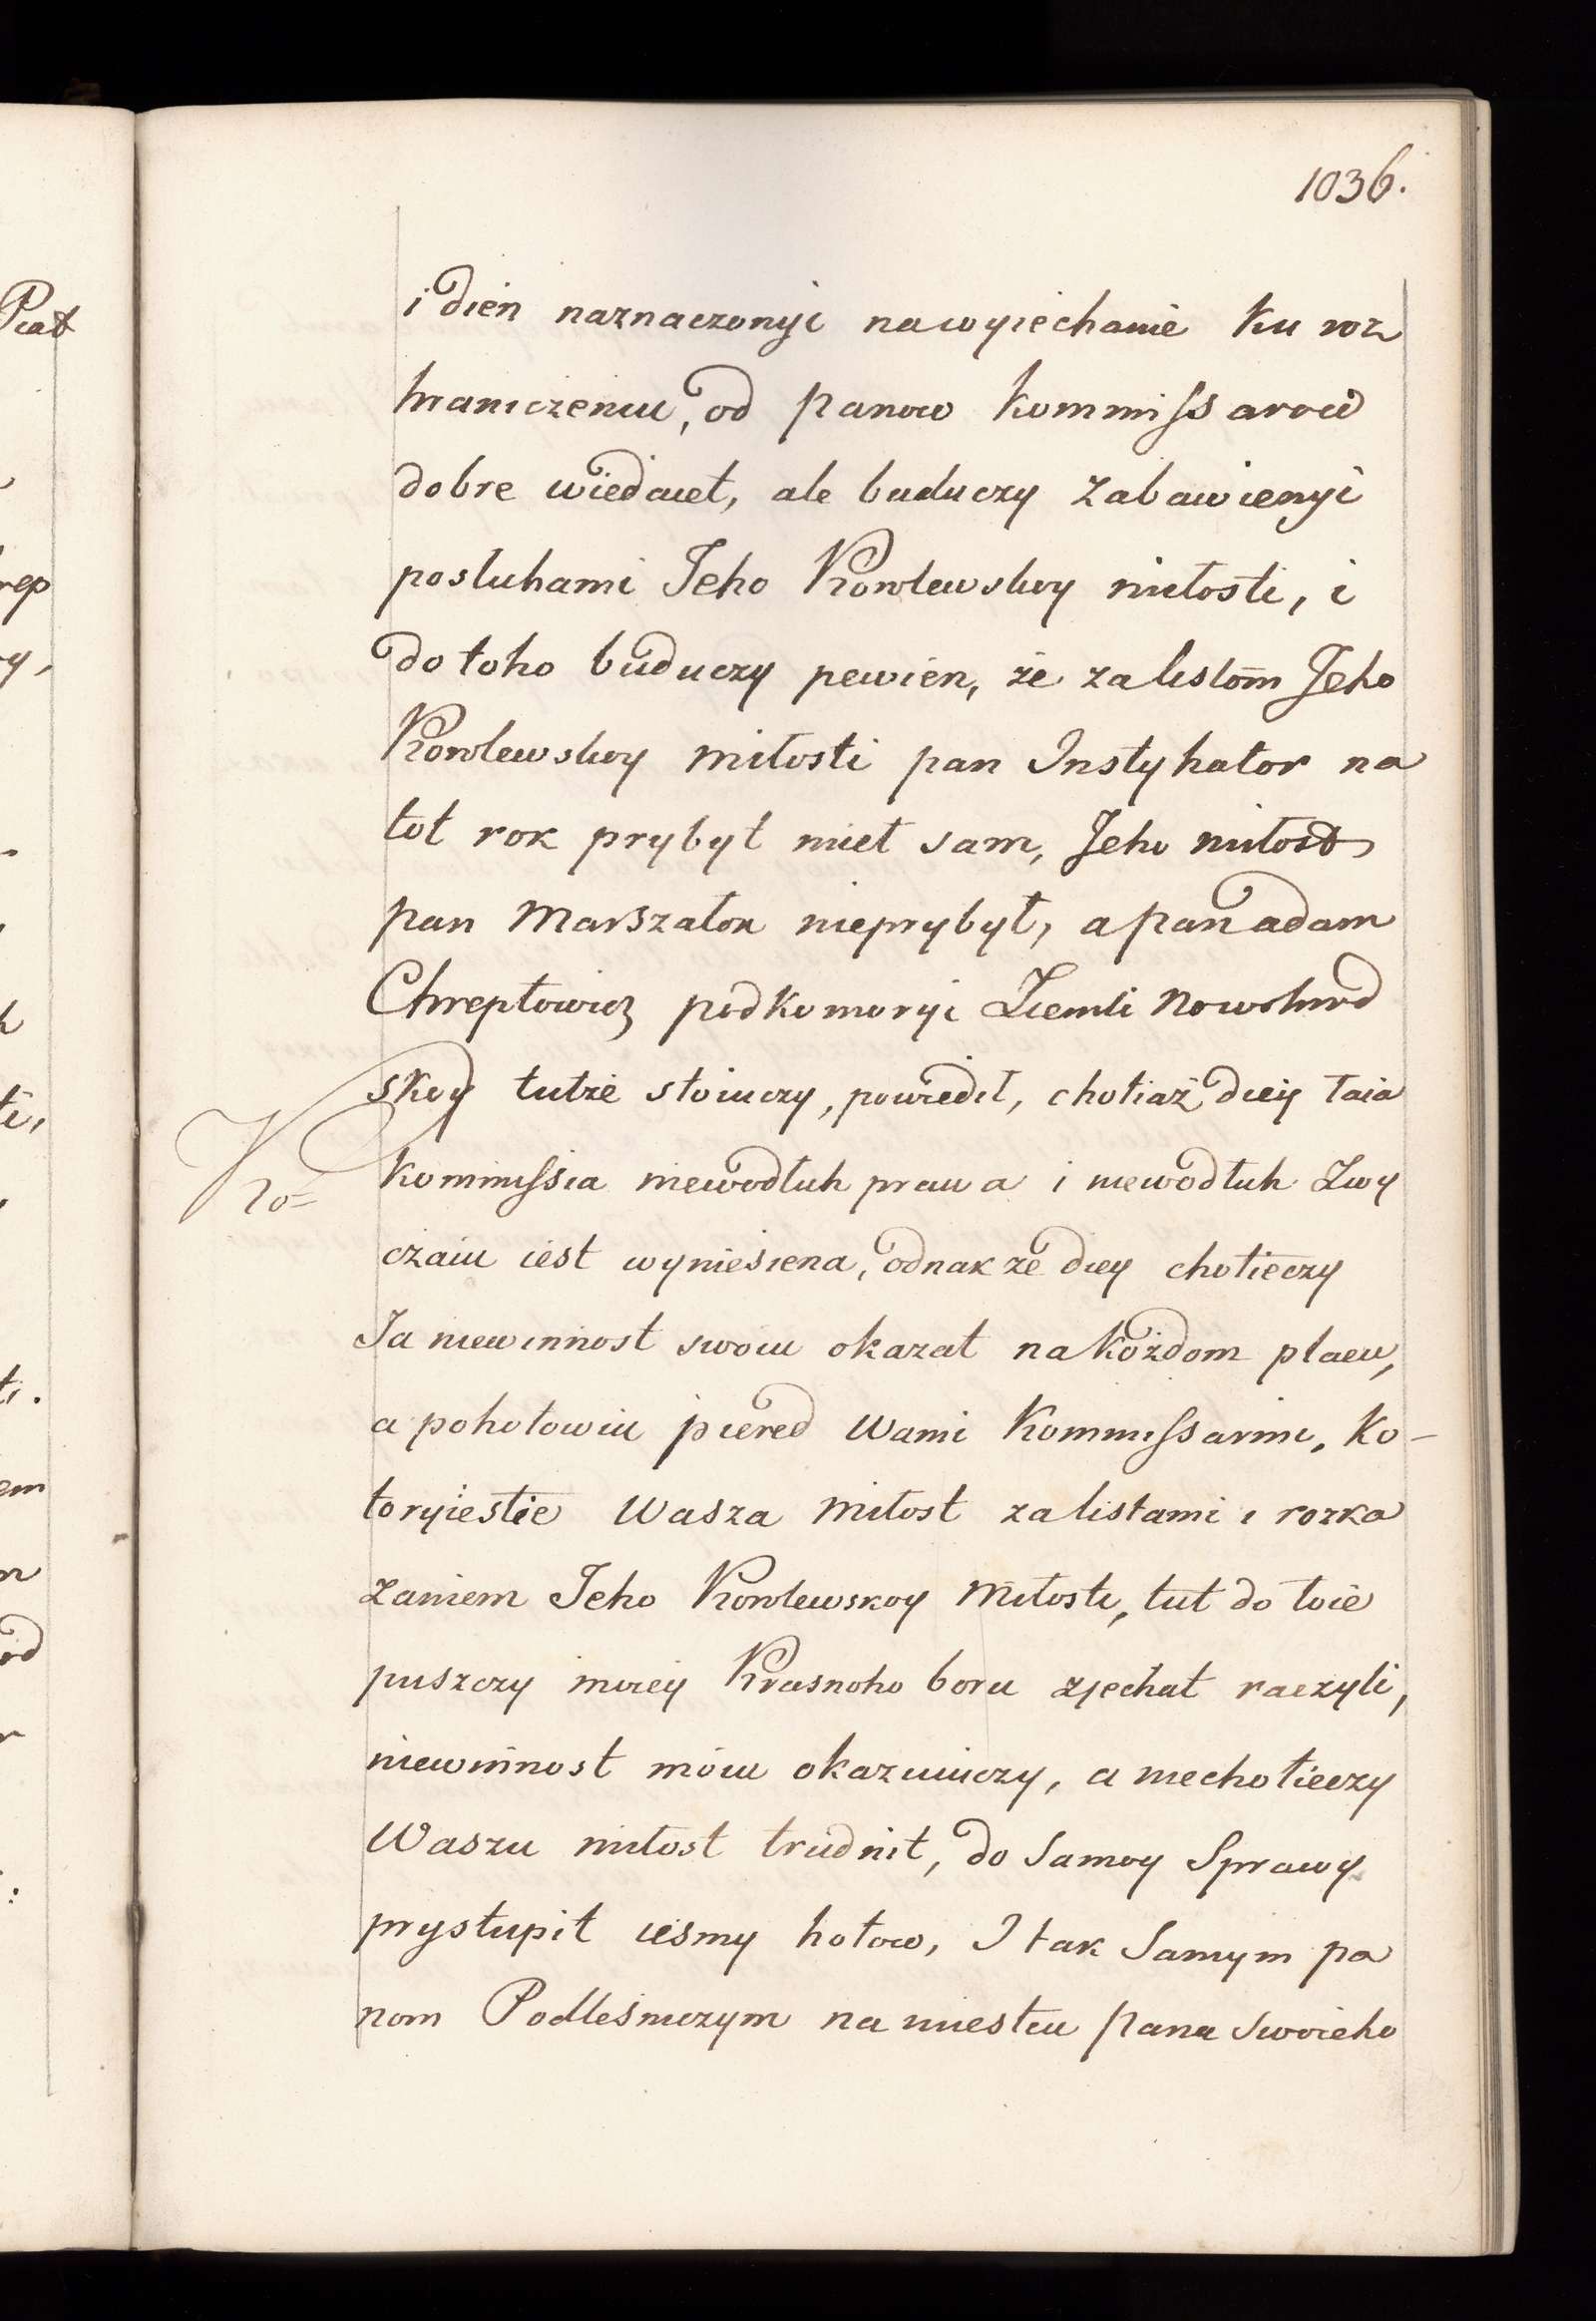 1036.
i dien naznaczonyi nawyiechanie ku roz
hraniczeniu, od panow kommissarow
dobre wiedaiet, ale buduczy zabawienyi
posluhami Jeho Korolewskoy miłosti, i
do toho buduczy pewien, że za listom Jeho
Korolewskoy miłosti pan Instyhator na
tot rok prybyt miet sam, Jeho miłost
pan Marszałok nieprybył, a pan adam
Chreptowicz podkomoryi Ziemli Nowohrod
skoy tutże stoiuczy, powiedił, chotiaż diey taia
kommissia niewodłuh prawa i niewodłuh Zwy
czaiu iest wyniesiena, odnakże diey chotieczy
Ja niewinnost swoiu okazat na kożdom placu,
a pohotowiu piered Wami Kommissarmi, Ko-
toryiestie Wasza Miłost za listami i rozka
zaniem Jeho Korolewskoy Miłosti, tut do toie
puszczy moiey Krasnoho boru zjechat raczyli,
niewinnost moiu okazuiuczy, a niechotieczy
Waszu miłost trudnit, do Samoy Sprawy
prystupit iesmy hotow, I tak Samym pa
nom Podleśniczym na miestcu Pana Swoieho
Piat
rep